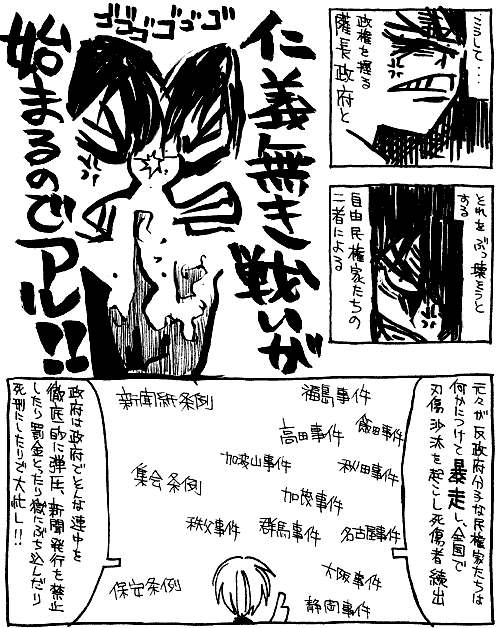 こうして…
政権を握る
薩長政府と
それをぶっ壊そうと
する
自由民権家たちの
二者による
仁義無き戦いが
始まるのでアル!!
ゴゴゴゴゴゴ
元々が反政府分子な民権家たちは
何かにつけて暴走し、全国で
刃傷沙汰を起こし死傷者続出
福島事件
飯田事件
高田事件
秋田事件
加波山事件
加茂事件
名古屋事件
群馬事件
秩父事件
大阪事件
静岡事件
新聞紙条例
集会条例
保安条例
政府は政府でそんな連中を
徹底的に弾圧、新聞発行を禁止
したり罰金とったり獄にぶち込んだり
死刑にしたりで大忙し!!